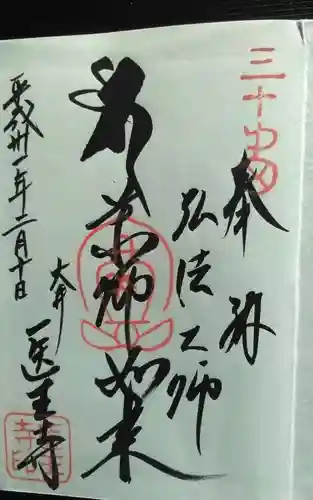 三十
奉拝
弘法大師
薬師如来
大井 医王寺
平成卅一年二月十日